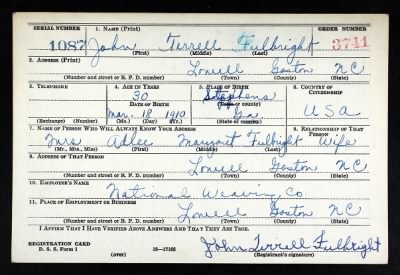 SERIAL NUMBER 1. NAME (Print) ORDER NUMBER
1087 John Terrell Fulbright 3741
(First) (Middle) (Last)
2. ADDRESS (Print)
Lowell Gaston NC
(Number and street or R. F. D. number) (Town) (County) (State)
3. TELEPHONE 4. AGE IN YEARS 5. PLACE OF BIRTH 6. COUNTRY OF CITIZENSHIP
30 Stephens
DATE OF BIRTH (Town or county)
Mar. 18 1910 Ga. USA
(Exchange) (Number) (Mo.) (Day) (Yr.) (State or country)
7. NAME OF PERSON WHO WILL ALWAYS KNOW YOUR ADDRESS 8. RELATIONSHIP OF THAT PERSON
Mrs Adlee Margaret Fulbright Wife
(Mr., Mrs., Miss) (First) (Middle) (Last)
9. ADDRESS OF THAT PERSON
Lowell Gaston NC
(Number and street or R. F. D. number) (Town) (County) (State)
10. EMPLOYER'S NAME
National Weaving Co
11. PLACE OF EMPLOYMENT OR BUSINESS
Lowell Gaston NC
(Number and street or R. F. D. number) (Town) (County) (State)
I AFFIRM THAT I HAVE VERIFIED ABOVE ANSWERS AND THAT THEY ARE TRUE.
REGISTRATION CARD
D. S. S. Form 1 (over) 16—17105 John Terrell Fulbright
(Registrant's signature)